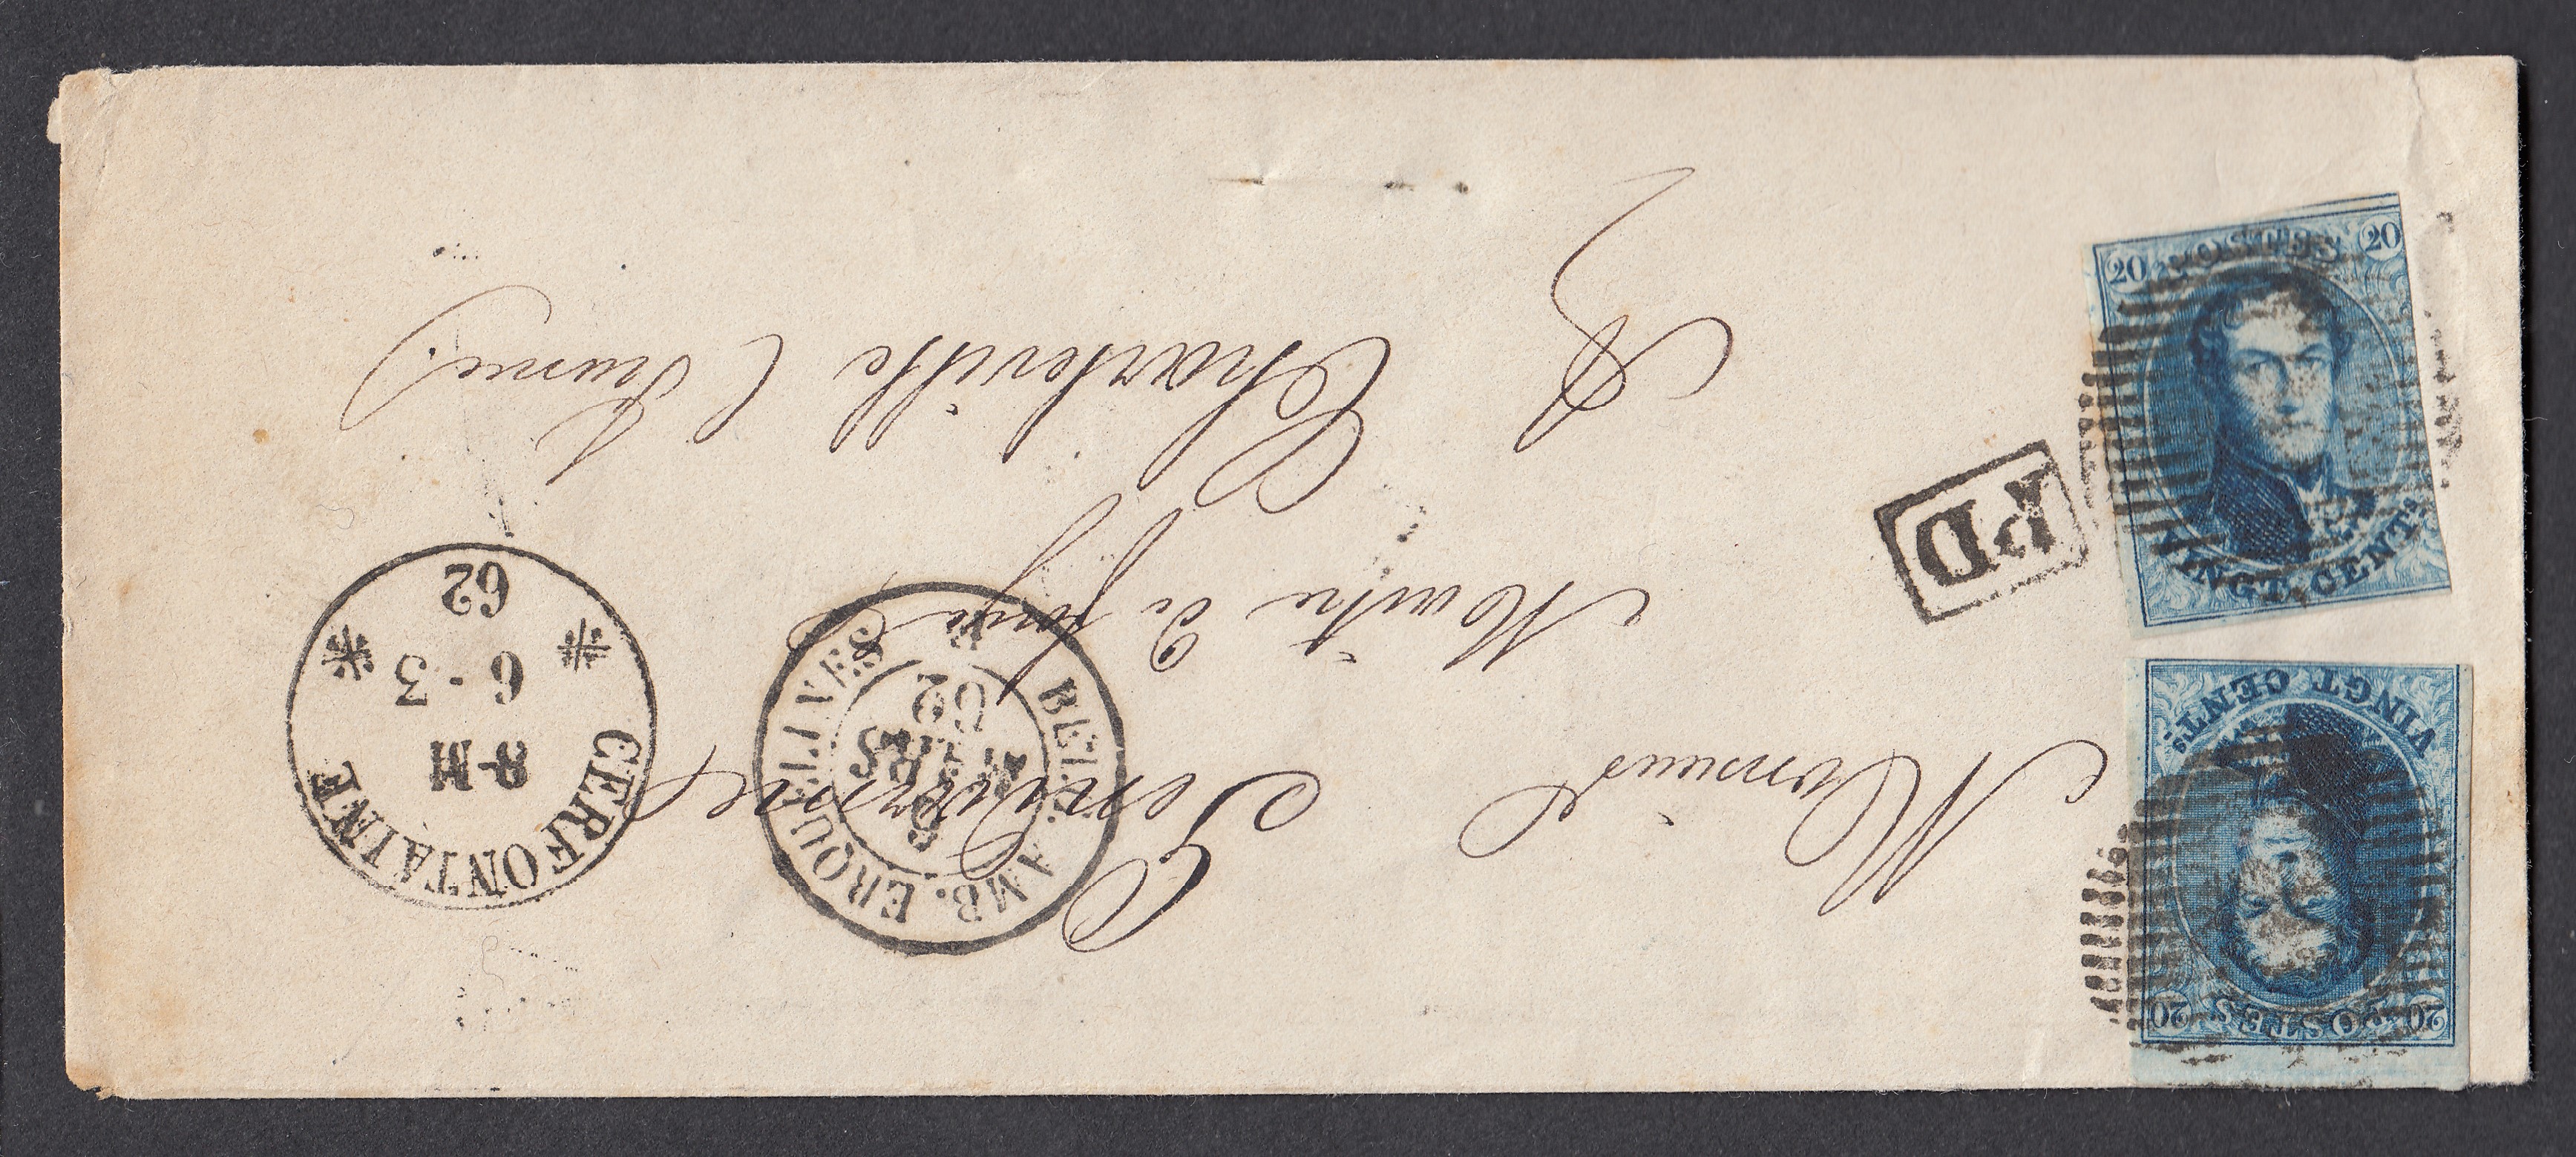 Monsieur
Maître de forge
A Charleville (
CERFONTAINE
8-M
6-3
62
BELG. AMB. ERQUELINES
MARS
62
PD
POSTES
20
20
VINGT CENTS.
POSTES
20
20
VINGT CENTS.